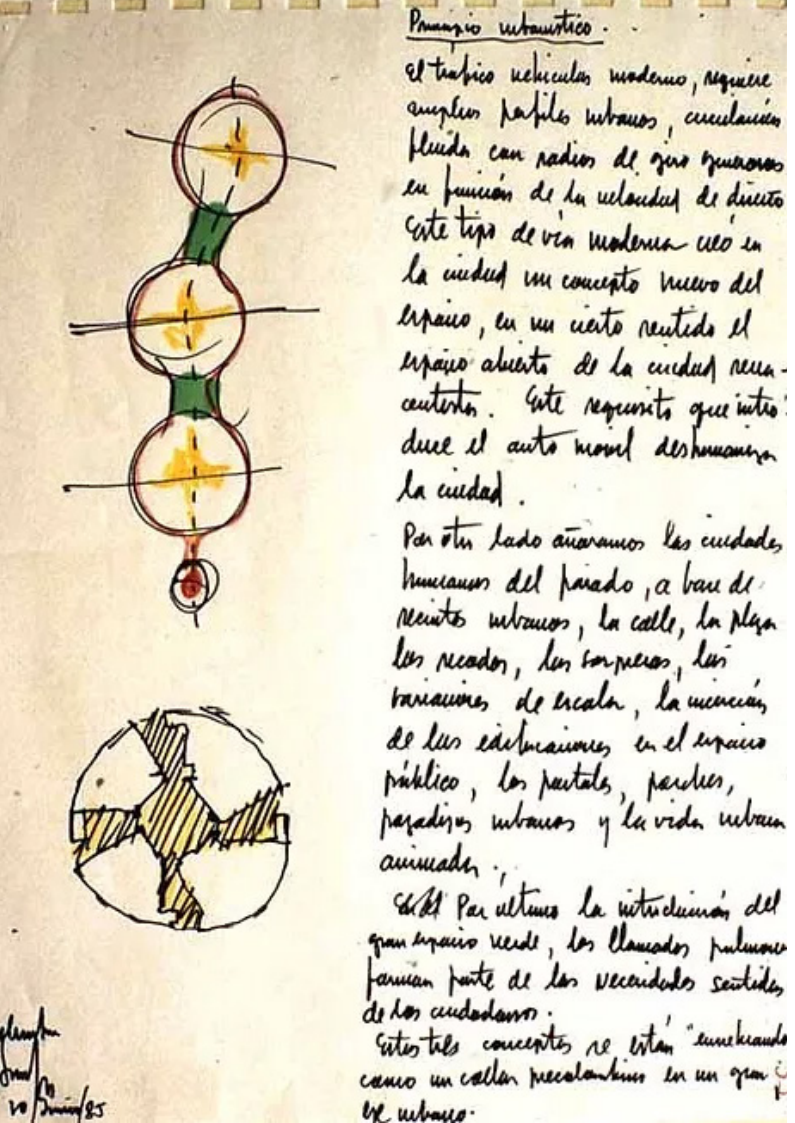 Principio urbanístico.
El tráfico vehicular moderno, requiere
amplios perfiles urbanos, circulación
fluida con radios de giro generosos
en función de la velocidad de diseño
Este tipo de vía moderna creó en
la ciudad un concepto nuevo del
espacio, en un cierto sentido el
espacio abierto de la ciudad rena-
centista. Este requisito que intro-
duce el auto movil deshumaniza
la ciudad.
Por otro lado añoramos las ciudades
humanas del pasado, a base de
recintos urbanos, la calle, la plaza
los recodos, las sorpresas, las
variaciones de escala, la inserción
de las edificaciones en el espacio
público, los portales, parches,
pazadizos urbanos y la vida urbana
animada.
Por ultimo la introducción del
gran espacio verde, los llamados pulmones
forman parte de las necesidades sentidas
de los ciudadanos.
Estos tres conceptos se están "enhebrando
como un collar precolombino en un gran
eje urbano.
20/Junio/85